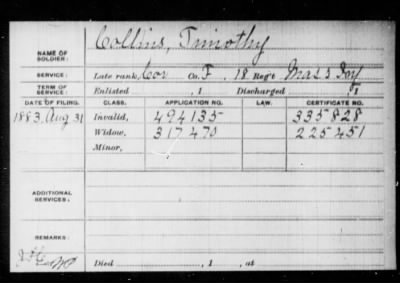 NAME OF SOLDIER: Collins, Timothy
SERVICE: Late rank, Cor Co. F, 18 Reg't Mass Inf
TERM OF SERVICE: Enlisted , 1 Discharged , 1
DATE OF FILING. CLASS. APPLICATION NO. LAW. CERTIFICATE NO.
1883, Aug 31 Invalid, 494135 335828
Widow, 317470 225451
Minor,
ADDITIONAL SERVICES:
REMARKS:
Died , 1 , at